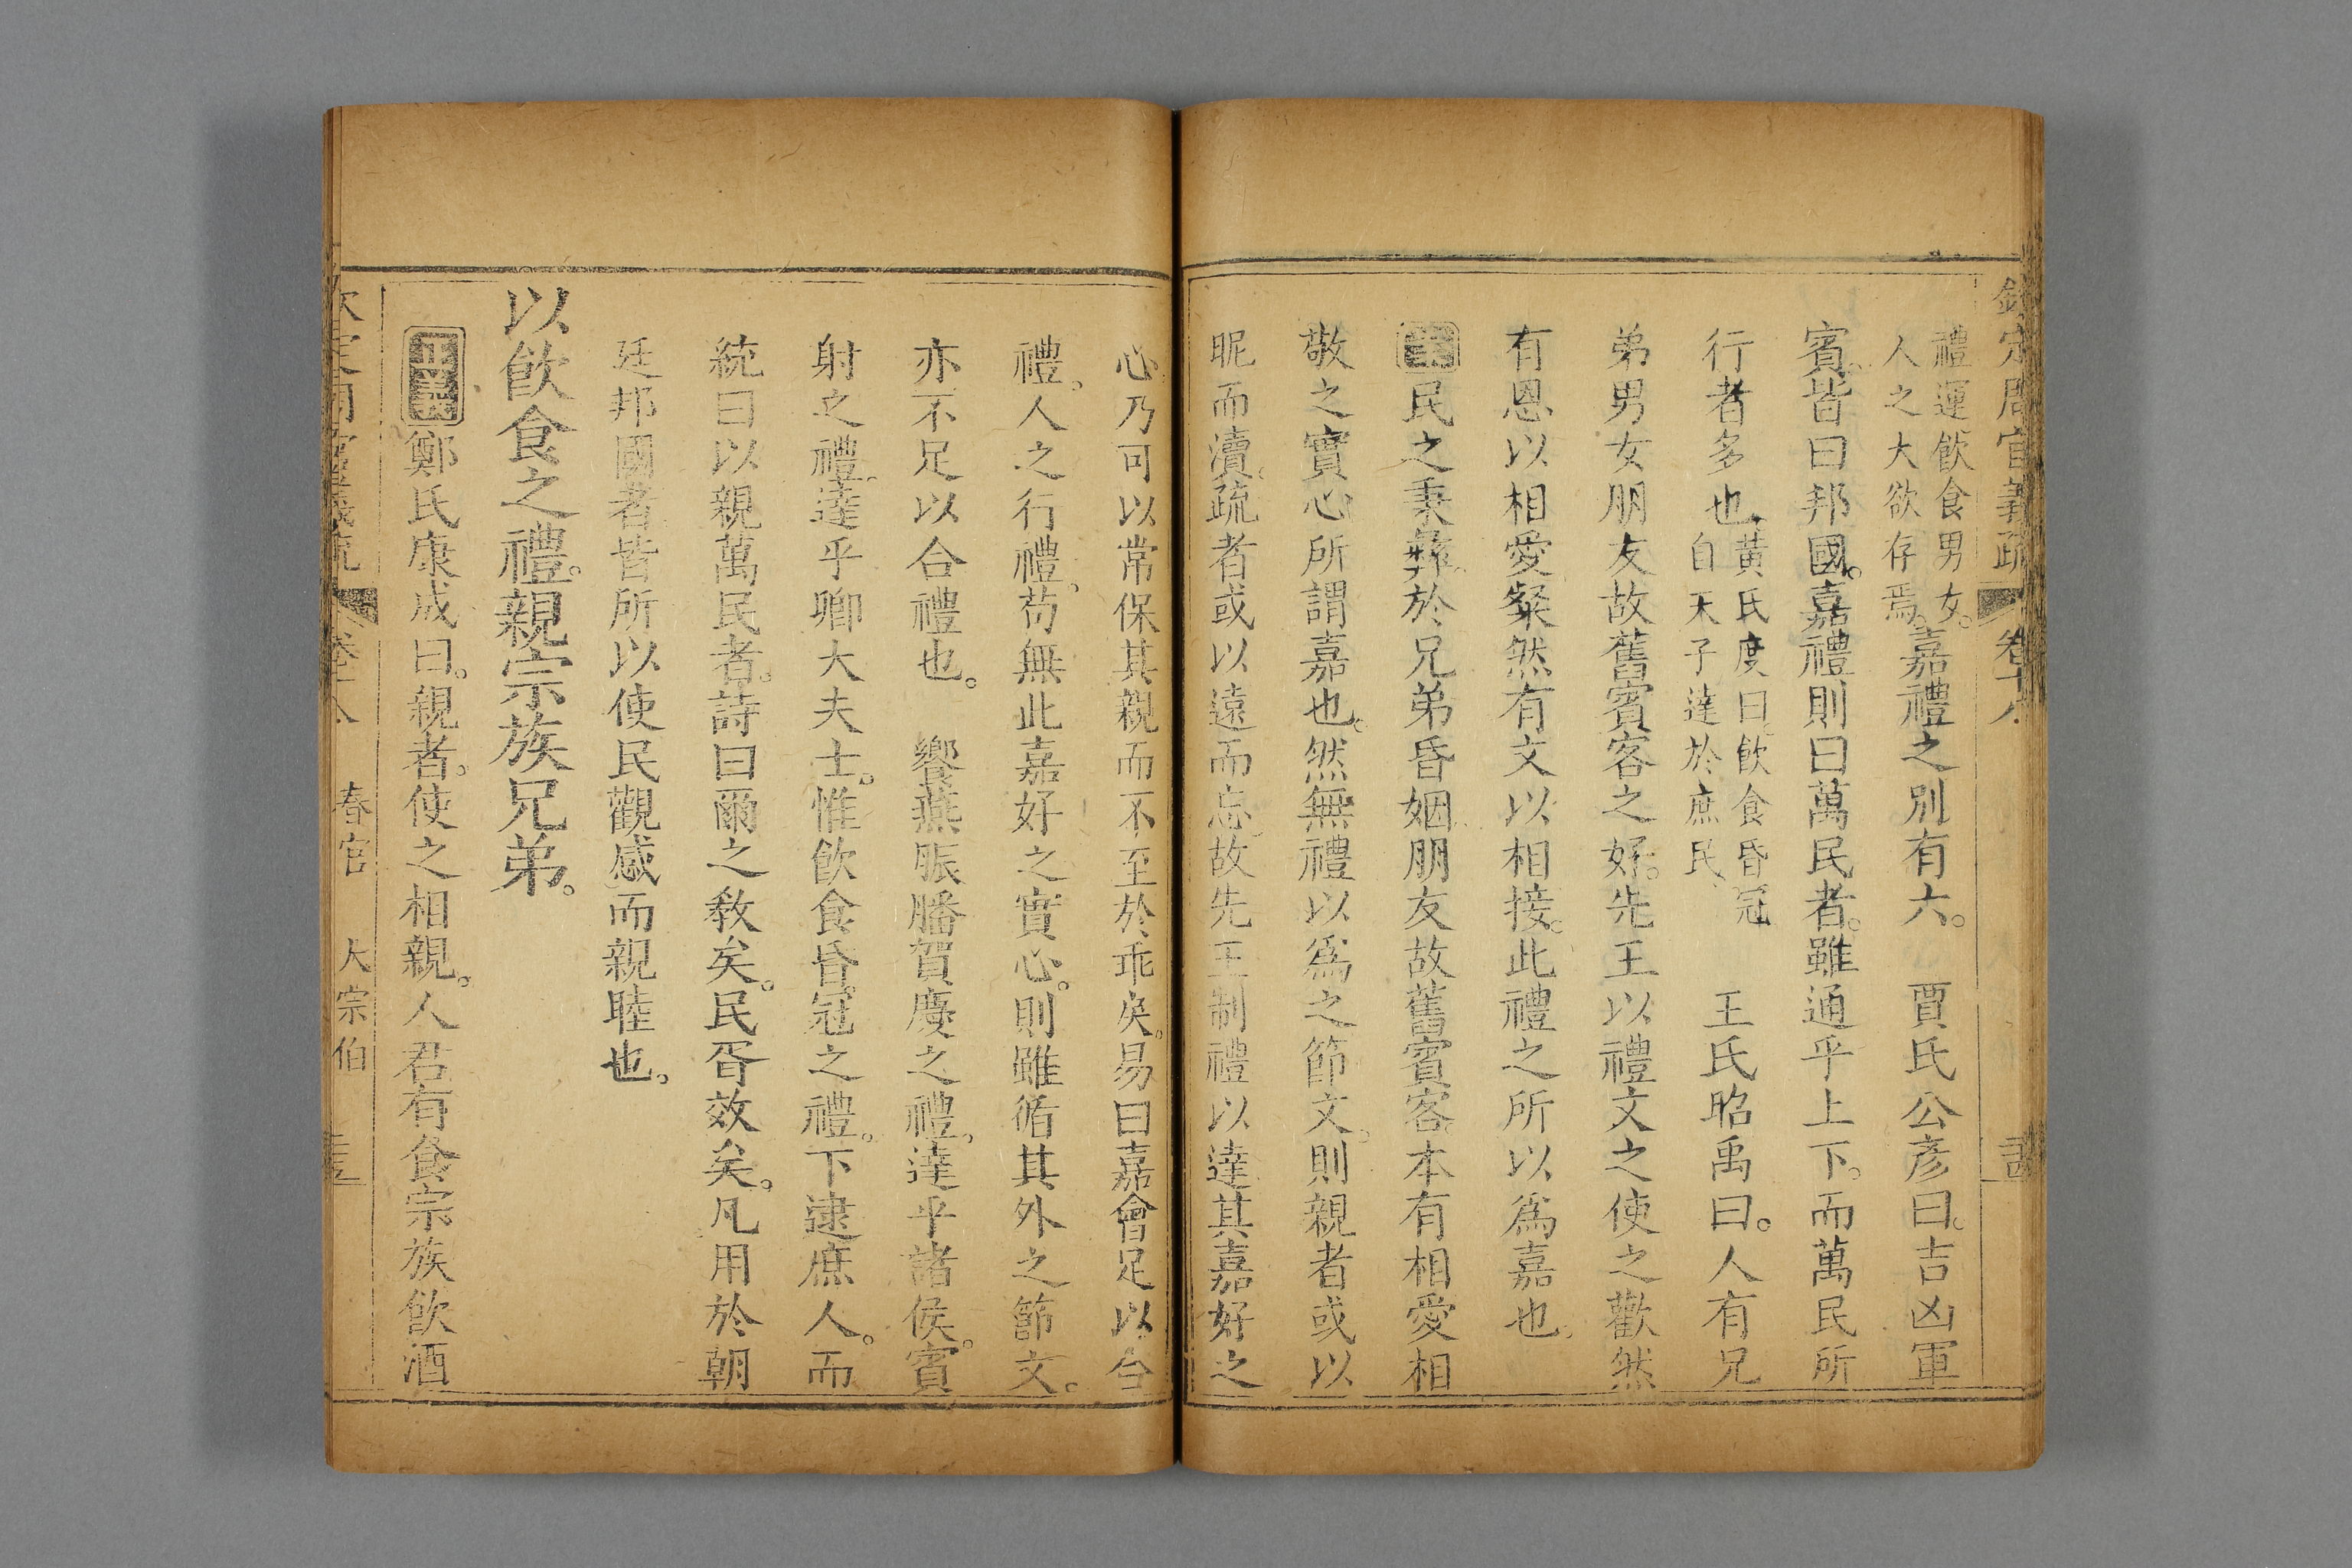 欽定周官義疏 卷十八
禮運飲食男女。
人之大欲存焉。
嘉禮之別有六。 賈氏公彥曰。吉凶軍
賓。皆曰邦國。嘉禮則曰萬民者。雖通乎上下。而萬民所
行者多也。
黃氏度曰。飲食昏冠
自天子達於庶民
王氏昭禹曰。人有兄
弟男女朋友故舊賓客之好。先王以禮文之使之歡然
有恩以相愛粲然有文以相接。此禮之所以爲嘉也
民之秉彝。於兄弟昏姻朋友故舊賓客本有相愛相
敬之實心所謂嘉也。然無禮以爲之節文。則親者或以
昵而瀆。疏者或以遠而忘。故先王制禮以達其嘉好之
心乃可以常保其親而不至於乖矣。易曰嘉會足以合
禮。人之行禮。苟無此嘉好之實心。則雖循其外之節文。
亦不足以合禮也。 饗燕脤膰賀慶之禮。達乎諸侯。賓
射之禮。達乎卿大夫士。惟飲食昏冠之禮。下逮庶人。而
統曰以親萬民者。詩曰爾之教矣。民胥效矣。凡用於朝
廷邦國者皆所以使民觀感而親睦也。
以飲食之禮。親宗族兄弟。
正義鄭氏康成曰。親者。使之相親。人君有食宗族飲酒
欽定周官義疏 卷十八 春官 大宗伯